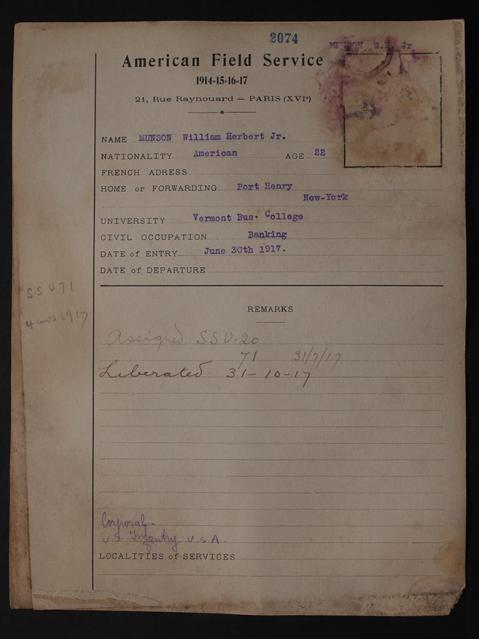 2074
MUNSON W.H. Jr
American Field Service
1914-15-16-17
21, Rue Raynouard — PARIS (XVIᵉ)
NAME MUNSON William Herbert Jr.
NATIONALITY American AGE 22
FRENCH ADRESS
HOME or FORWARDING Port Henry
New-York
UNIVERSITY Vermont Bus. College
CIVIL OCCUPATION Banking
DATE of ENTRY June 30th 1917.
DATE of DEPARTURE
SSU 71
4 mos 1917
REMARKS
Assigned SSU-20
71 31/7/17
Liberated 31-10-17
Corporal-
U.S. Infantry U.S.A.
LOCALITIES of SERVICES